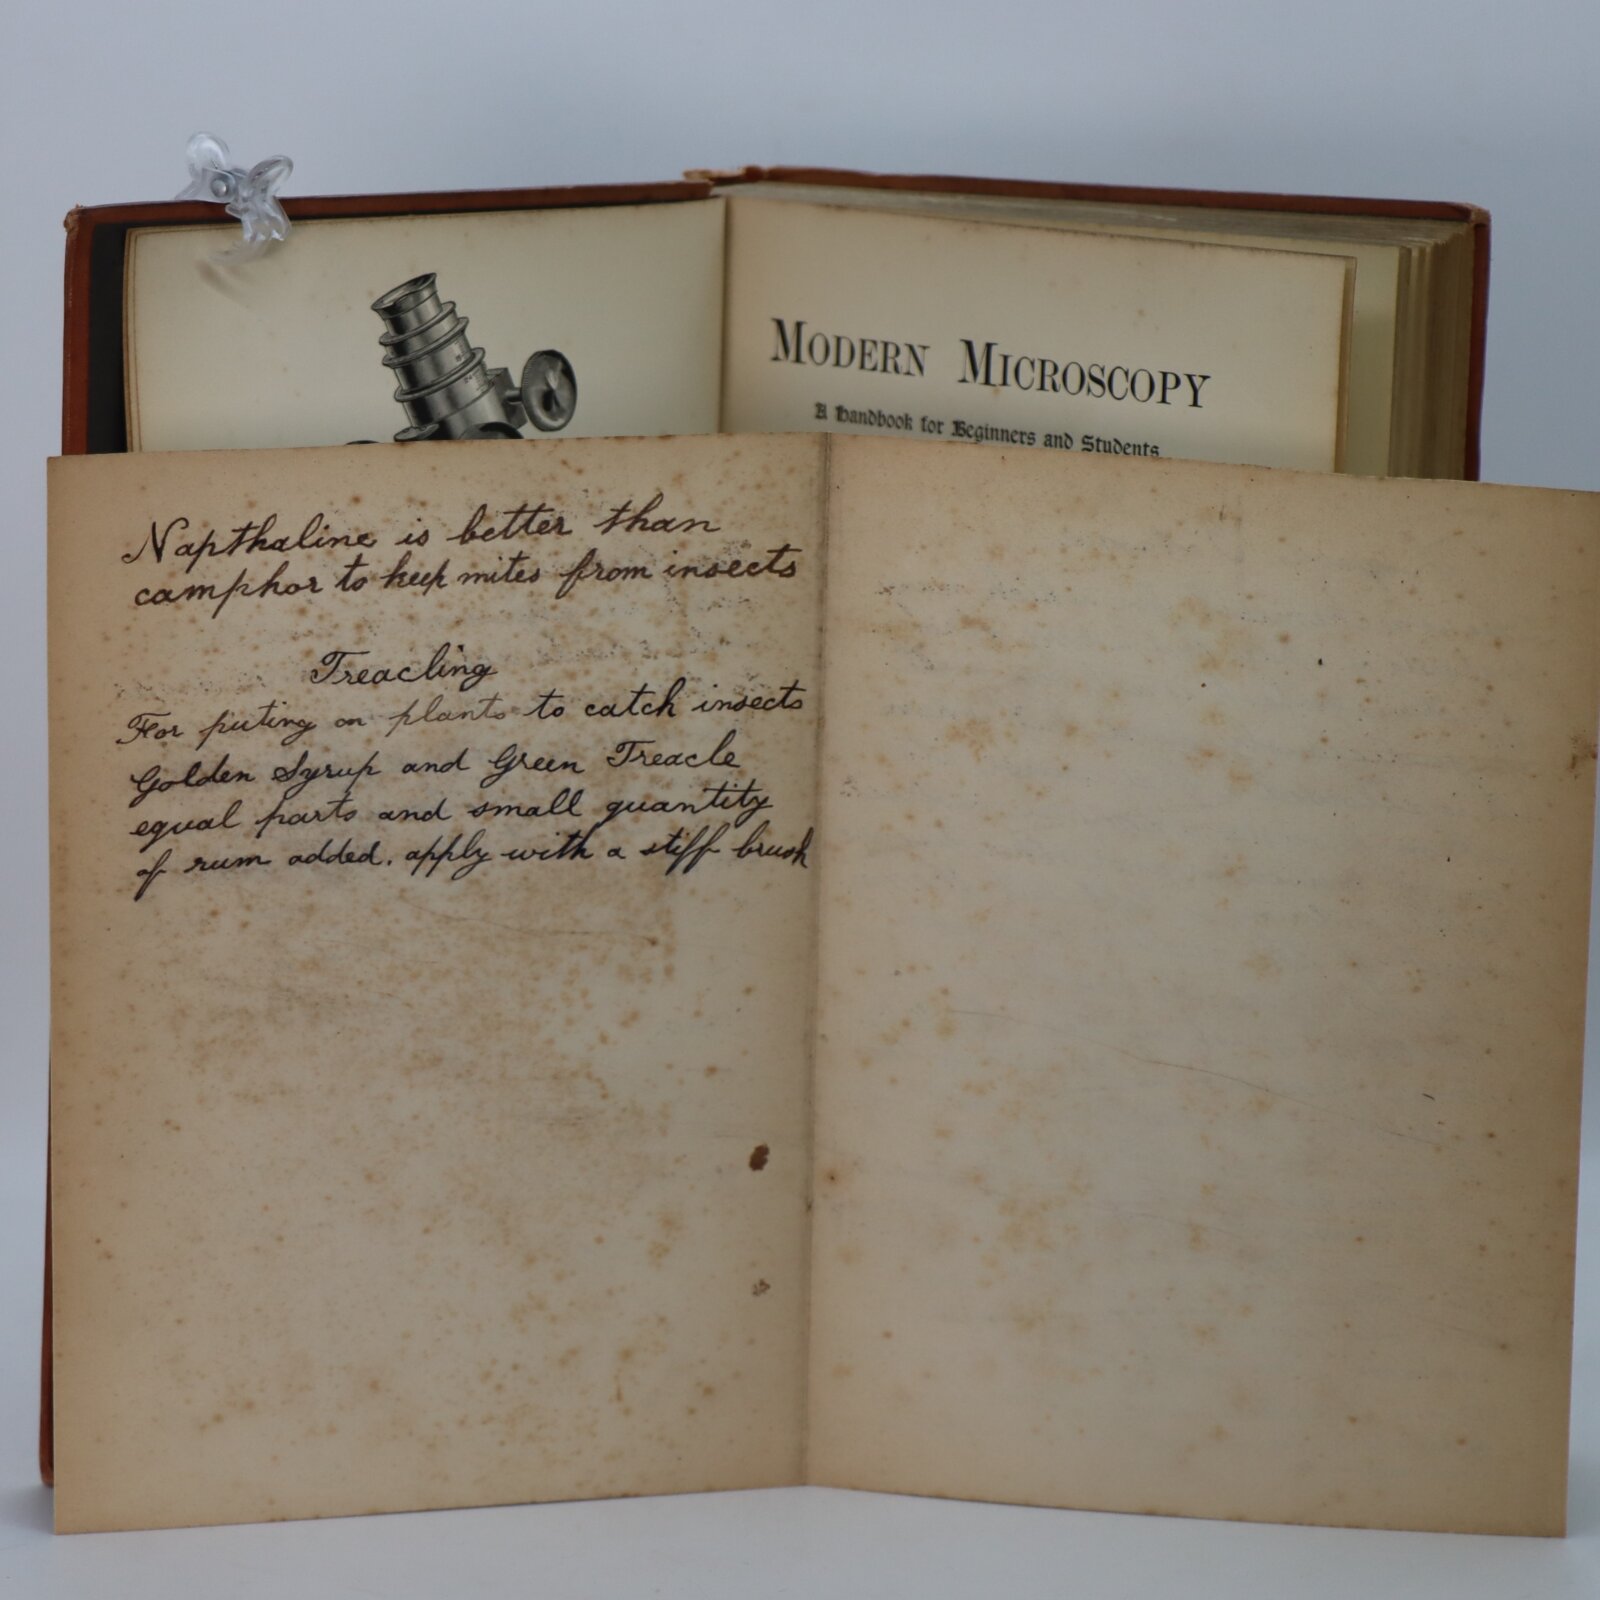 MODERN MICROSCOPY
A Handbook for Beginners and Students
Napthaline is better than
camphor to keep mites from insects
Treacling
For puting on plants to catch insects
Golden Syrup and Green Treacle
equal parts and small quantity
of rum added. apply with a stiff brush